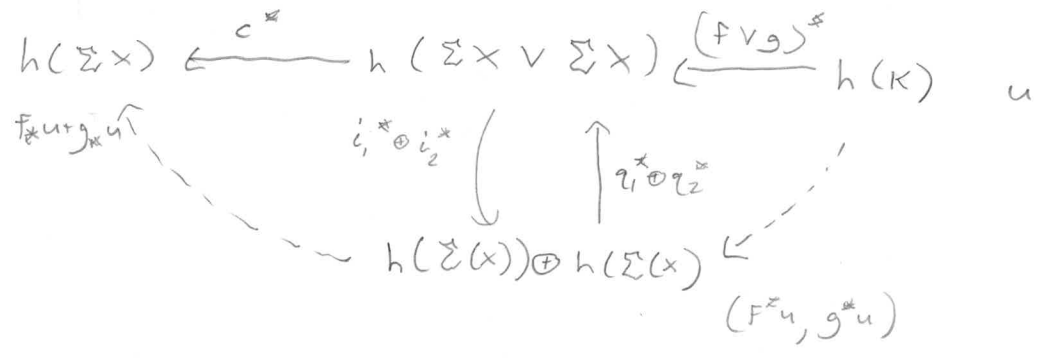 h(Σx) c* h(Σx ∨ Σx) (f∨g)* h(K) u
f*u+g*u i₁*⊕i₂* q₁*⊕q₂*
h(Σ(x))⊕h(Σ(x)
(f*u, g*u)